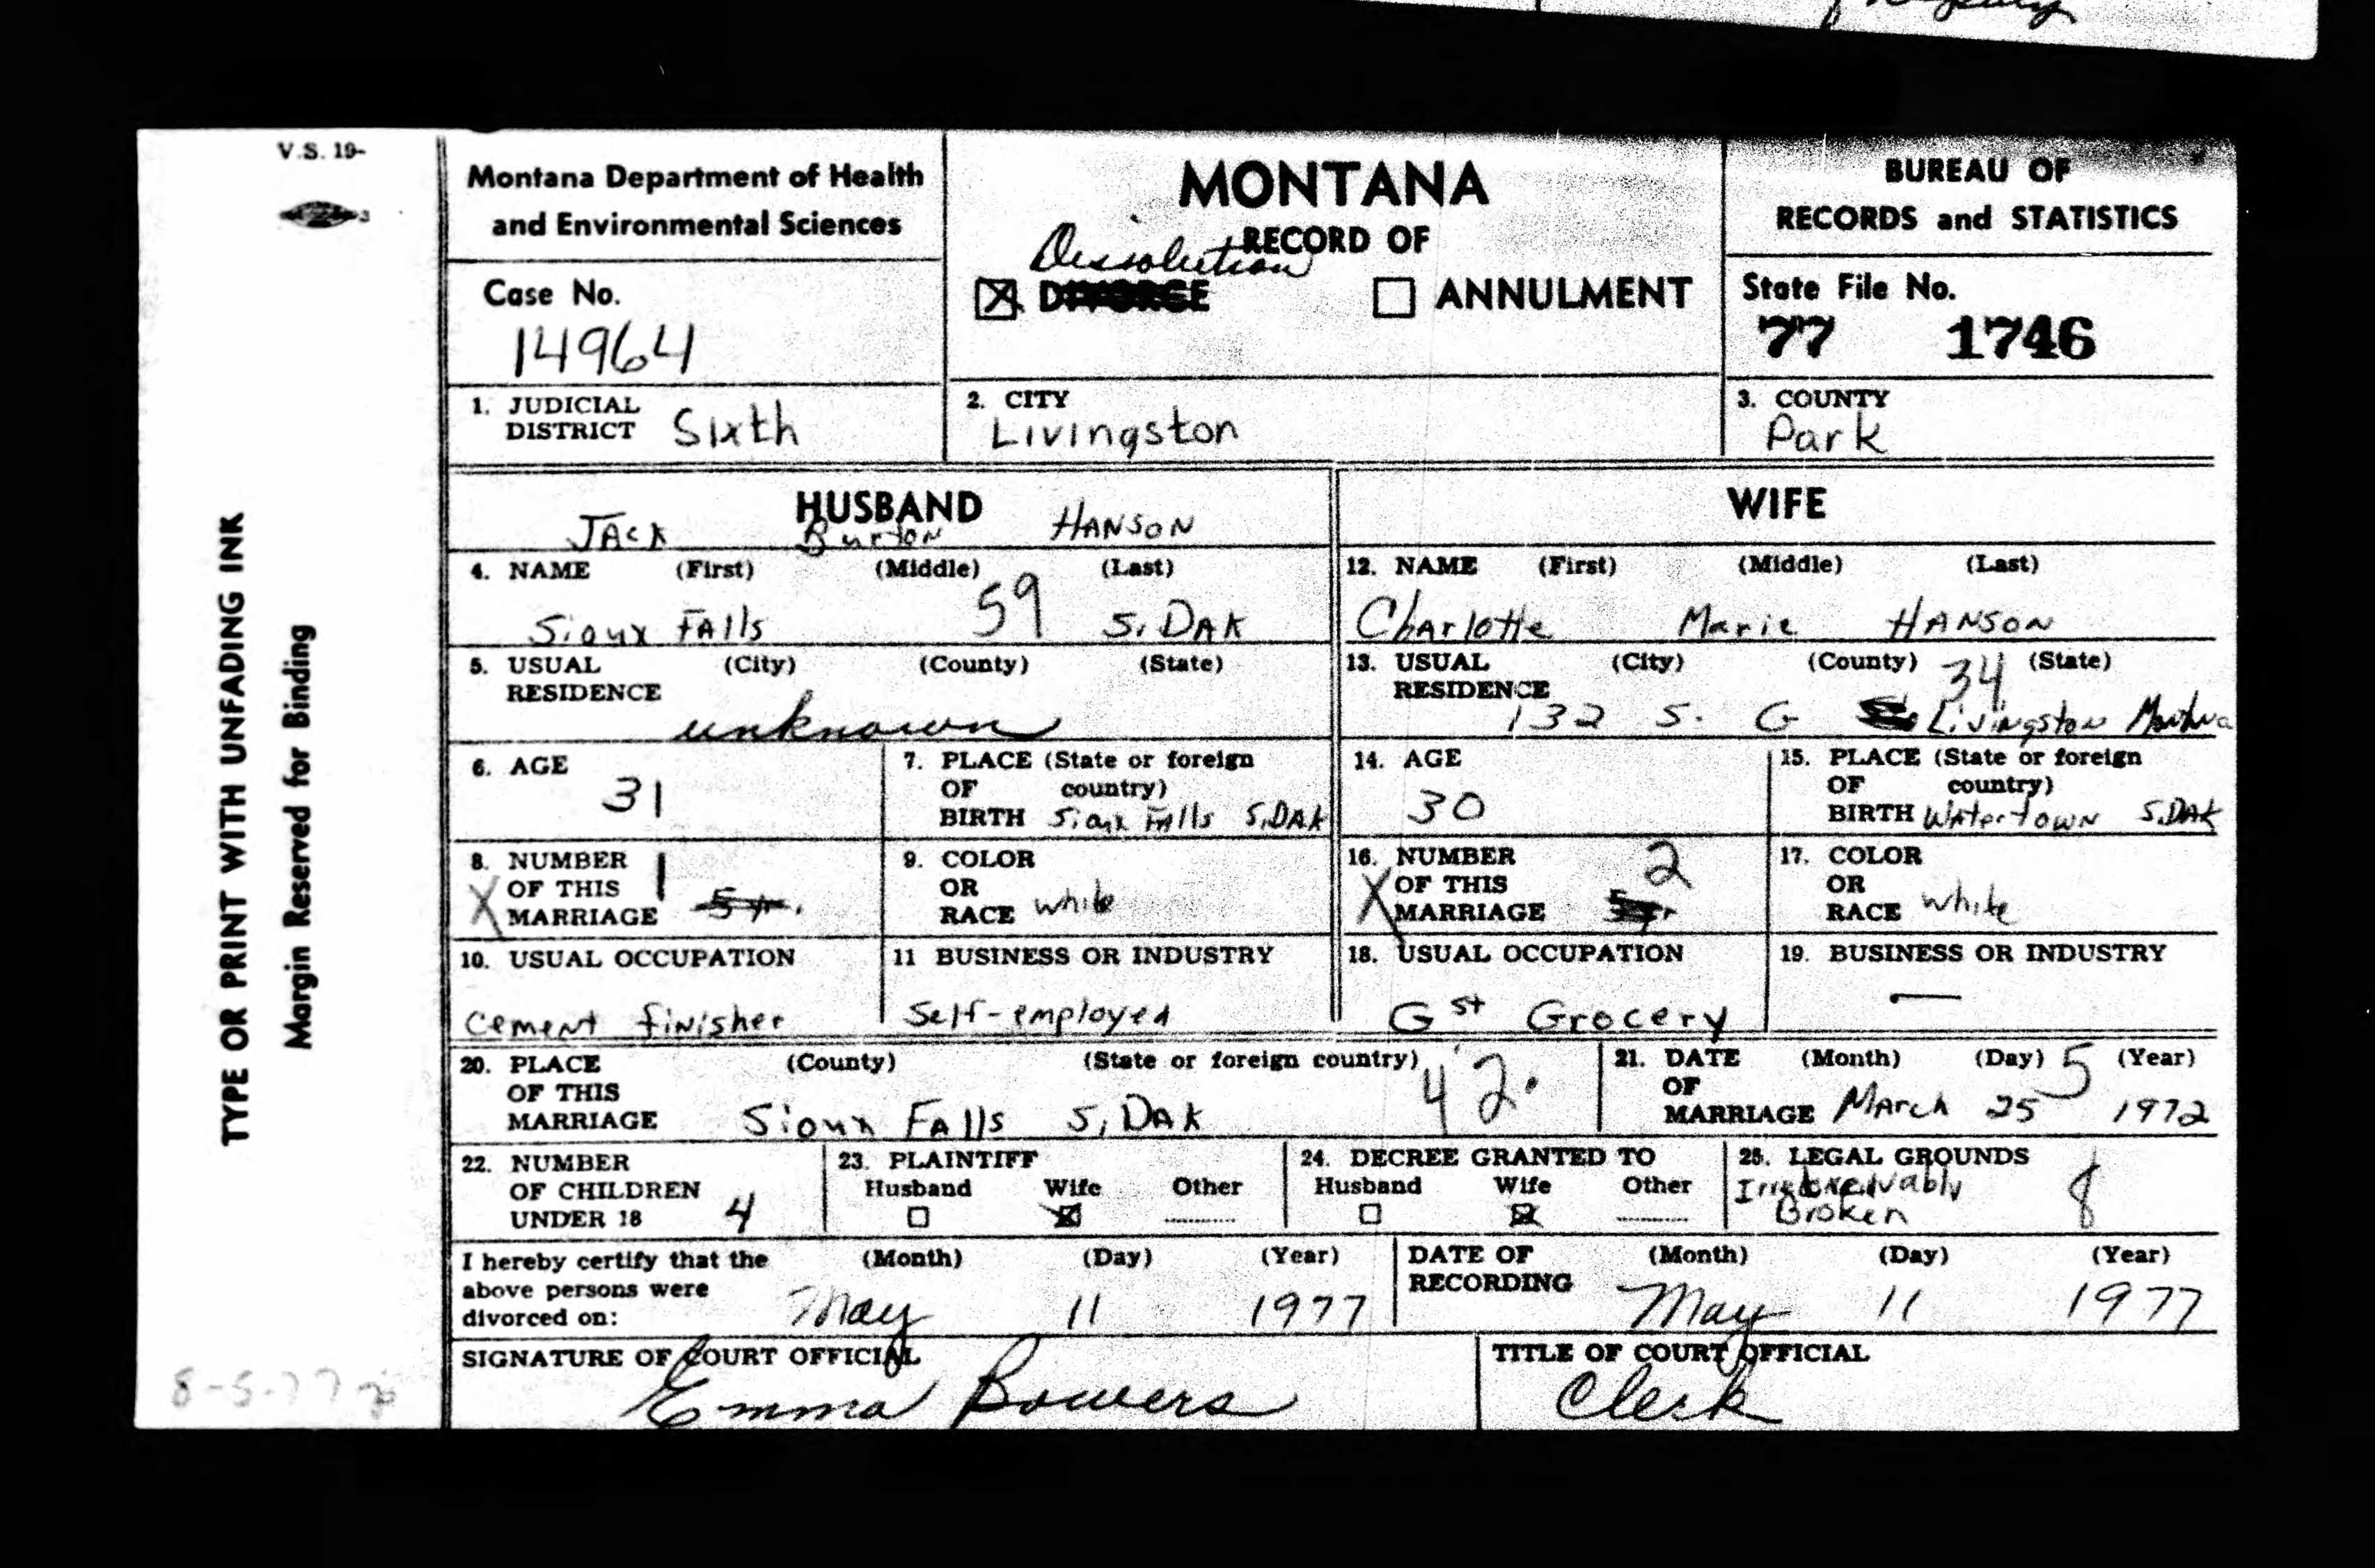 V.S. 19-
Montana Department of Health
and Environmental Sciences
MONTANA
RECORD OF
Dissolution
DIVORCE
ANNULMENT
BUREAU OF
RECORDS and STATISTICS
Case No.
14964
State File No.
77 1746
1. JUDICIAL
DISTRICT Sixth
2. CITY
Livingston
3. COUNTY
Park
TYPE OR PRINT WITH UNFADING INK
Margin Reserved for Binding
HUSBAND
WIFE
JACK Burton HANSON
4. NAME (First) (Middle) (Last)
12. NAME (First) (Middle) (Last)
Sioux FAlls 59 S. DAK
Charlotte Marie HANSON
5. USUAL (City) (County) (State)
RESIDENCE
unknown
13. USUAL (City) (County) 34 (State)
RESIDENCE
132 S. G Livingston Montana
6. AGE
31
7. PLACE (State or foreign
OF country)
BIRTH Sioux FAlls S.DAK
14. AGE
30
15. PLACE (State or foreign
OF country)
BIRTH Watertown S.DAK
8. NUMBER
OF THIS 1
X MARRIAGE 5 yr.
9. COLOR
OR
RACE white
16. NUMBER 2
OF THIS
X MARRIAGE
17. COLOR
OR
RACE white
10. USUAL OCCUPATION
cement finisher
11 BUSINESS OR INDUSTRY
Self-employed
18. USUAL OCCUPATION
G St Grocery
19. BUSINESS OR INDUSTRY
—
20. PLACE (County) (State or foreign country)
OF THIS
MARRIAGE Sioux FAlls S. DAK 42.
21. DATE (Month) (Day) 5 (Year)
OF
MARRIAGE MArch 25 1972
22. NUMBER
OF CHILDREN
UNDER 18 4
23. PLAINTIFF
Husband Wife Other
24. DECREE GRANTED TO
Husband Wife Other
25. LEGAL GROUNDS
Broken
8
I hereby certify that the (Month) (Day) (Year)
above persons were
divorced on: May 11 1977
DATE OF (Month) (Day) (Year)
RECORDING
May 11 1977
SIGNATURE OF COURT OFFICIAL
Emma Bowers
TITLE OF COURT OFFICIAL
Clerk
8-5-77